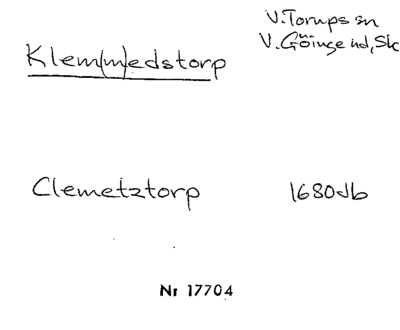 V. Torups sn
Klem(m)edstorp
V. Göinge hd, Sk
Clemetztorp 1680Jb
Nr 17704